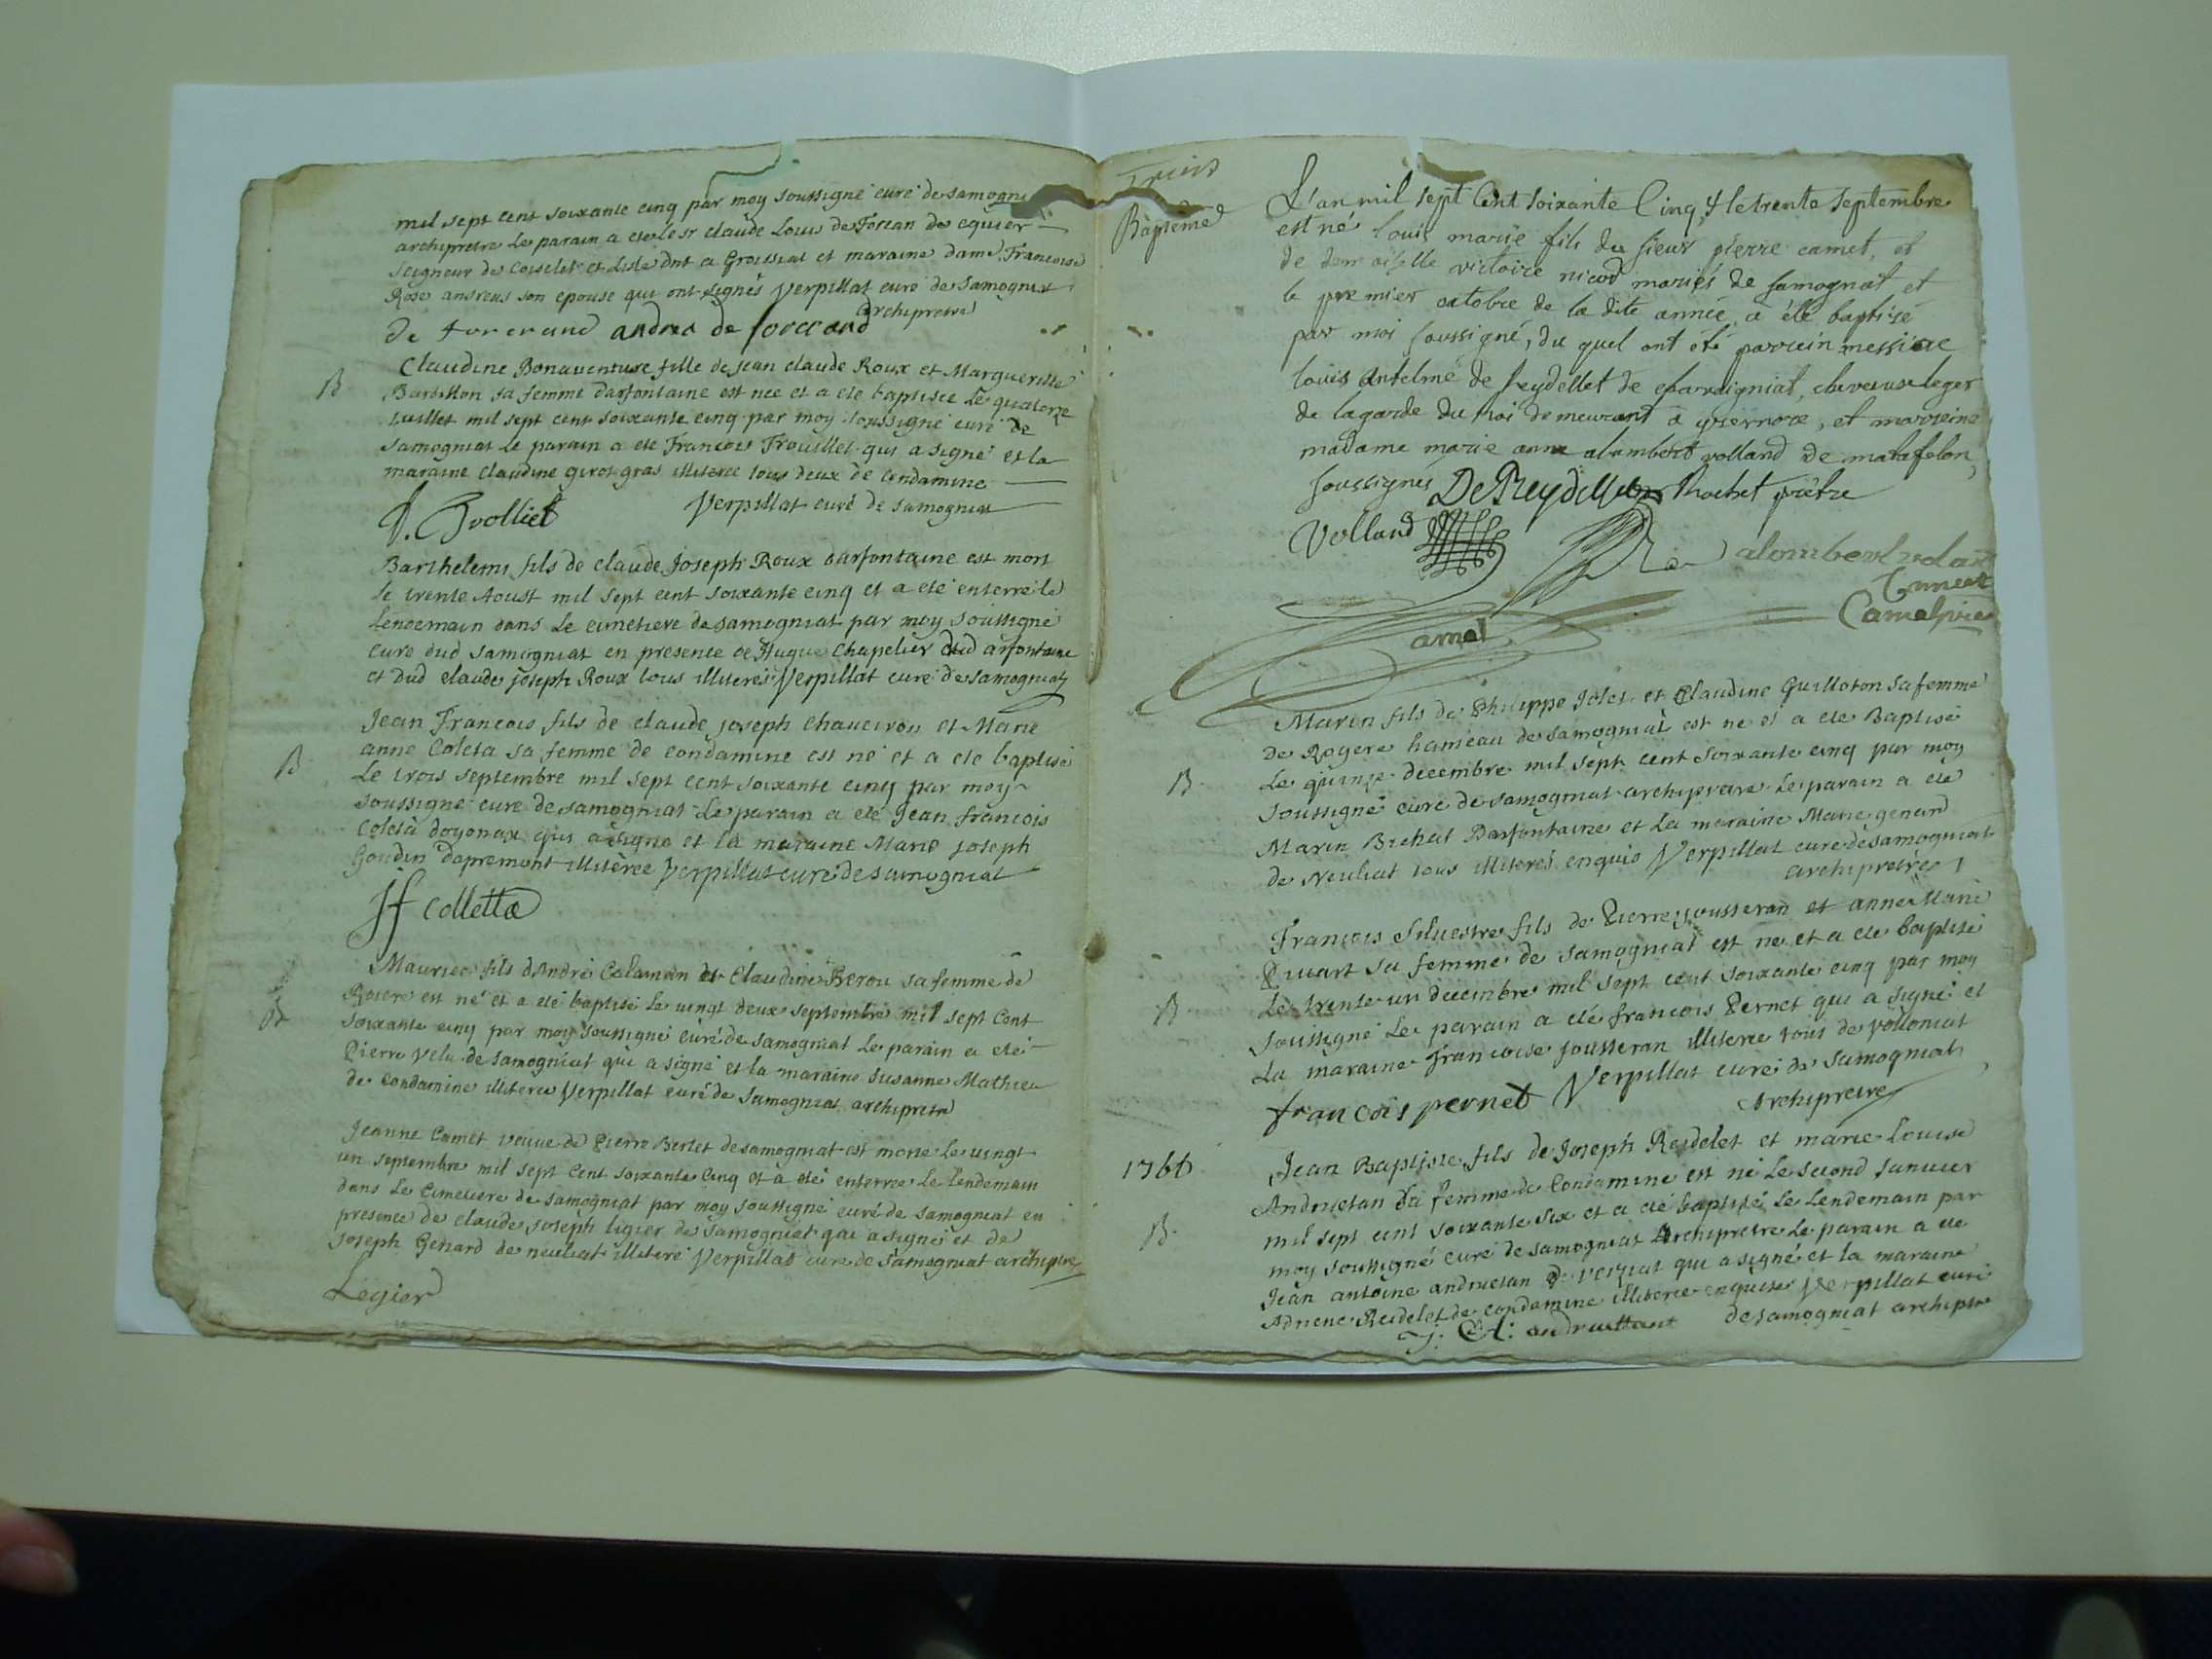 mil sept cent soixante cinq par moy soussigné curé de samogni
archipretre Le parain a ete le sr claude Louis de Forcan de equier
seigneur de Coiselet et Lisle dnt a Groissiat et maraine dame Francoise
Rose andreus son epouse qui ont signés Verpillat curé de Samogniat
archipretre
de forcrand andrea de forcrand
B
Claudine Bonaventure fille de jean claude Roux et Marguerite
Barbillon sa femme darfontaine est nee et a ete baptisee Le quatorze
juillet mil sept cent soixante cinq par moy soussigné curé de
samogniat Le parain a ete Francois Trouillet qui a signé et la
maraine claudine girot gras illiteree tous deux de condamine
Verpillat curé de samogniat
Barthelemi fils de claude Joseph Roux darfontaine est mort
le trente Aoust mil sept cent soixante cinq et a eté enterré le
lendemain dans Le cimetiere de samogniat par moy soussigné
curé dud samogniat en presence de Hugue Chapelier dud arfontaine
et dud claude joseph Roux tous illiterés Verpillat curé de samogniat
B
Jean Francois fils de claude joseph chaveiron et Marie
anne Coleta sa femme de condamine est né et a ete baptisé
Le trois septembre mil sept cent soixante cinq par moy
soussigné curé de samogniat Le parain a eté Jean francois
Coleta doyonax qui a signé et la maraine Marie joseph
Goudin dapremont illiteree Verpillat curé de samogniat
Jf colletta
B
Maurice fils d'André Calaman et Claudine Berou sa femme de
Rogere est né et a eté baptisé Le vingt deux septembre mil sept Cent
soixante cinq par moy soussigné curé de samogniat Le parain a eté
Pierre Velu de samogniat qui a signé et la maraine Susanne Mathieu
de Condamine illiteree Verpillat curé de Samogniat archipretre
Jeanne Camet veuve de Pierre Berlet de samogniat est morte Le vingt
un septembre mil sept Cent soixante Cinq et a eté enterree Le lendemain
dans Le Cimetiere de samogniat par moy soussigné curé de samogniat en
presence de claude joseph ligier de samogniat qui a signé et de
joseph Genard de neuliat illiteré Verpillat curé de samogniat archiptre
Legier
Baptême
L'an mil sept Cent soixante Cinq, & le trente septembre
est né louis marie fils du sieur pierre camet, et
de demoiselle victoire nicod mariés de samognat et
le premier octobre de la dite année, a été baptisé
par moi soussigné, du quel ont été parrein messire
louis antelme de seydellet de chavaigniat, cheveauleger
de la garde du Roi demeurant a yzernore, et marreine
madame marie anne alombert volland de matafelon,
soussignés DeReydellet Rochet prêtre
Volland
alombert volan
Camet
amel
B
Marin fils de Philippe Jolet et Claudine Guilloton sa femme
de Rogere hameau de samogniat est né et a ete Baptisé
Le quinze decembre mil sept cent soixante cinq par moy
soussigné curé de samogniat archipretre Le parain a eté
Marin Bichat Darfontaine et La maraine Marie genard
de Neuliat tous illiterés enquis Verpillat curé de samogniat
archipretre
B
François Silvestre fils de Pierre jousseran et anne Marie
Pivart sa femme de samogniat est né et a ete baptisé
Le trente un decembre mil sept cent soixante cinq par moy
soussigné Le parain a eté francois Pernet qui a signé et
La maraine francoise jousseran illiteree tous de volloniat
francois pernet Verpillat curé de samogniat
archipretre
1766
B
Jean Baptiste fils de Joseph Reidelet et marie Louise
Andruetan sa femme de Condamine est né Le second janvier
mil sept cent soixante six et a eté baptisé Le Lendemain par
moy soussigné curé de samogniat Archipretre Le parain a eté
Jean antoine andruetan de veiziat qui a signé et la maraine
Adriene Reidelet de condamine illiteree enquise Verpillat curé
J: A: andruettant de samogniat archiptre